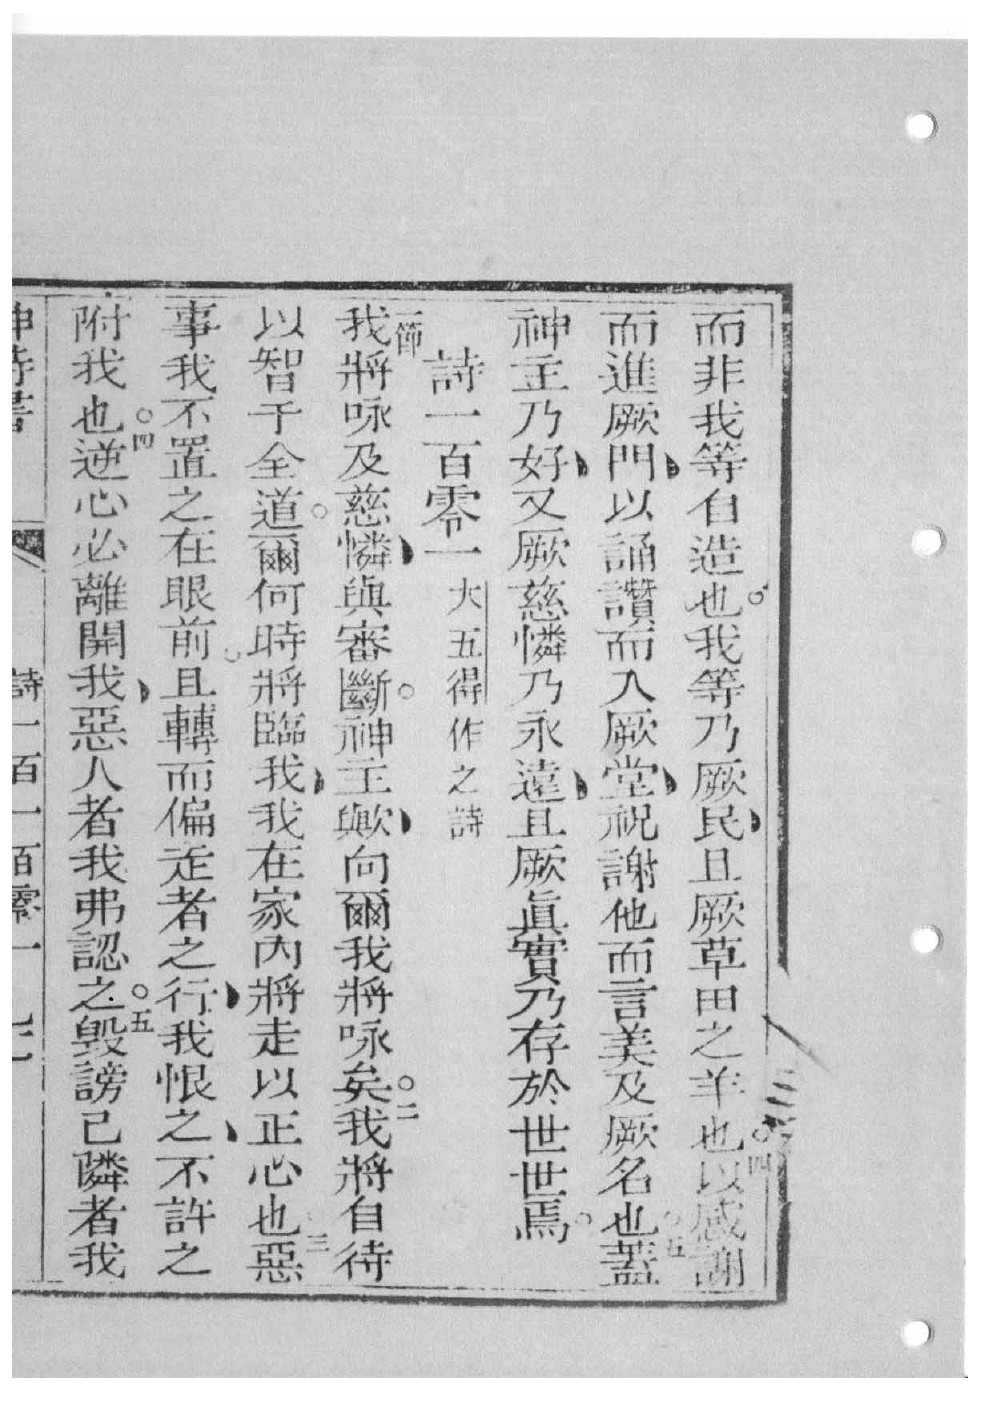 而非我等自造也我等乃厥民且厥草田之羊也四以感謝
而進厥門以誦讚而入厥堂祝謝他而言美及厥名也五蓋
神主乃好又厥慈憐乃永遠且厥眞實乃存於世世焉
詩一百零一 大五得作之詩
一節我將咏及慈憐與審斷神主歟向爾我將咏矣二我將自待
以智于全道爾何時將臨我我在家內將走以正心也三惡
事我不置之在眼前且轉而偏走者之行我恨之不許之
附我也四逆心必離開我惡人者我弗認之五毀謗己隣者我
神詩書 詩一百一百零一